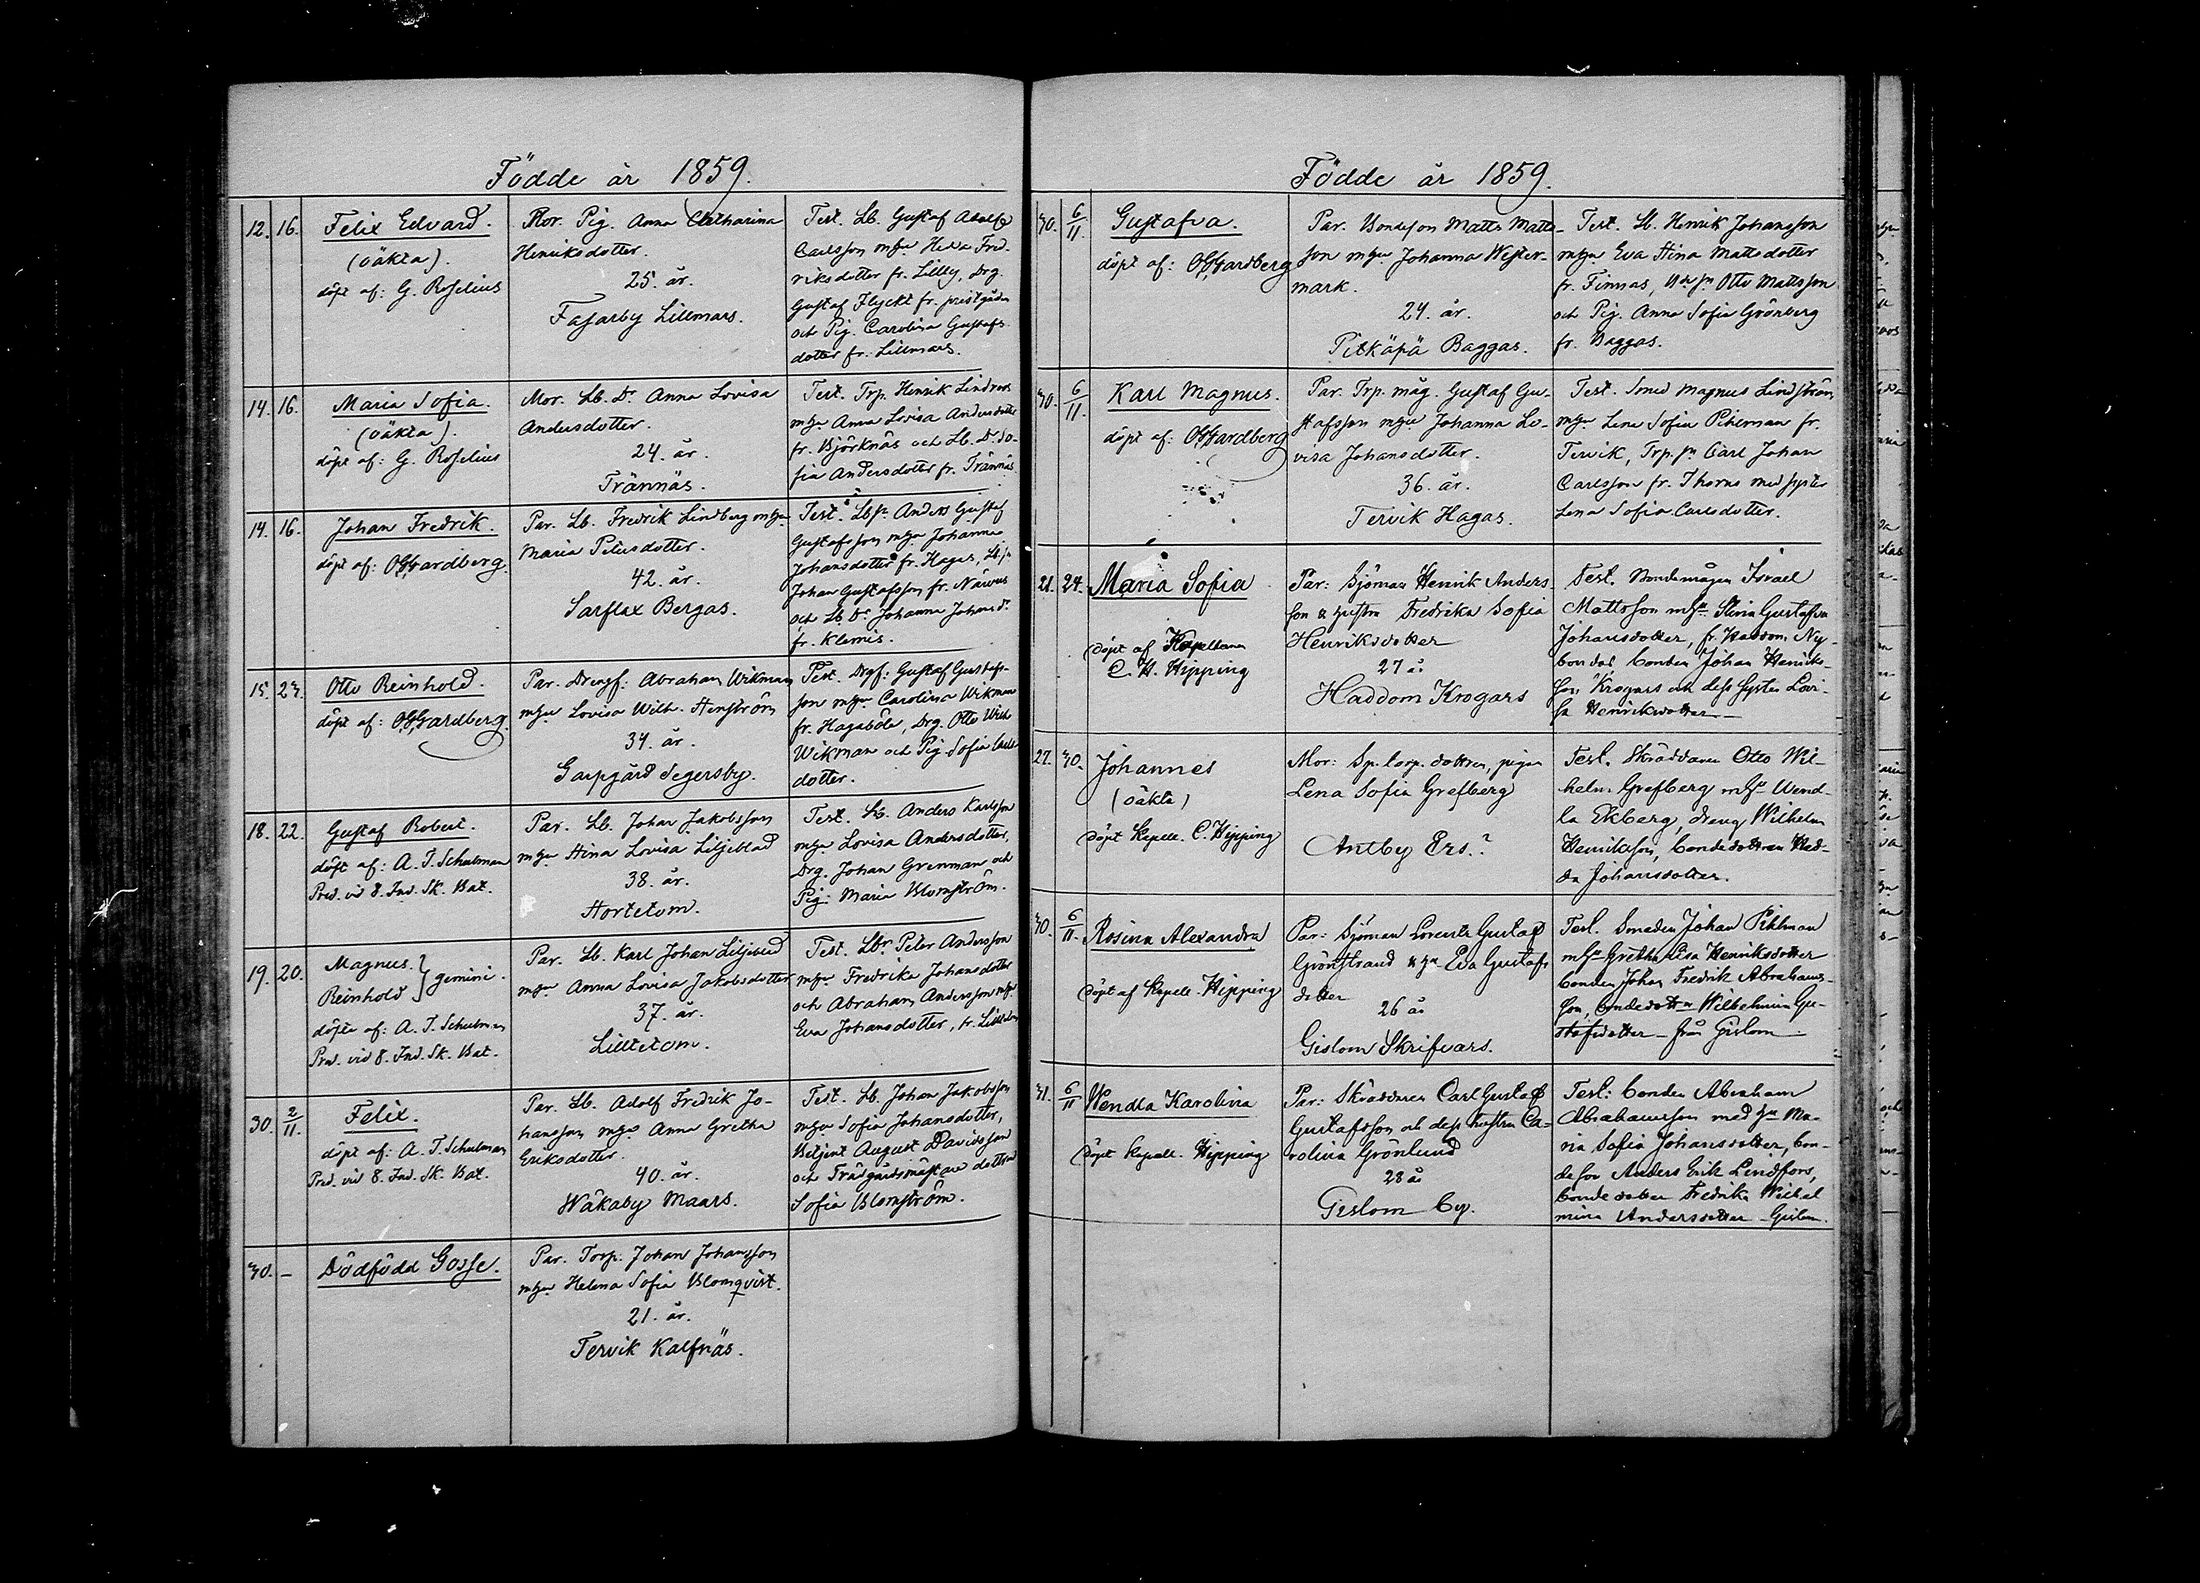 Födde år 1859.
12. 16. Felix Edvard.
(oäkta).
döpt af: G. Roselius
Mor. Pig. Anna Catharina
Henriksdotter.
25. år.
Fasarby Lillmars.
Test. Lb. Gustaf Adolf
Carlsson mhu Hedda Fred-
riksdotter fr. Lilleby, Drg.
Gustaf Flyckt fr. prestgården
och Pig. Carolina Gustafs-
dotter fr. Lillmars.
14. 16. Maria Sofia.
(oäkta).
döpt af: G. Roselius
Mor. Lb. Dr. Anna Lovisa
Andersdotter.
24. år.
Trännäs.
Test. Trp. Henrik Lindroos
mhu Anna Lovisa Andersdotter
fr. Björknäs och Lb. Dr. So-
fia Andersdotter fr. Trännäs
14. 16. Johan Fredrik.
döpt af: O. Gardberg.
Par. Lb. Fredrik Lindberg mhu
Maria Petersdotter.
42. år.
Sarflax Bergas.
Test. Lbsn Anders Gustaf
Gustafsson mhu Johanna
Johansdotter fr. Hagas, Lb. sn
Johan Gustafsson fr. Närvus
och Lb Dr. Johanna Johans dr.
fr. Klemis.
15. 23. Otto Reinhold.
döpt af: O. Gardberg.
Par. Drengf: Abraham Wikman
mhu Lovisa Wilh. Stenström
34. år.
Garpgård Segersby.
Test. Drgf: Gustaf Gustafs-
son mhu Carolina Wikman
fr. Hagaböle, Drg. Otto Wilh
Wikman och Pig. Sofia Carls-
dotter.
18. 22. Gustaf Robert.
döpt af: A. T. Schulman
Pred. vid 8. Ind. Sk. Bat.
Par. Lb. Johan Jakobsson
mhu Stina Lovisa Liljeblad
38. år.
Hortetom.
Test. Lb. Anders Karlsson
mhu Lovisa Andersdotter,
Drg. Johan Grenman och
Pig: Maria Blomström.
19. 20. Magnus.
Reinhold } gemini.
döpte af: A. T. Schulman
Pred. vid 8. Ind. Sk. Bat.
Par. Lb. Karl Johan Liljeblad
mhu Anna Lovisa Jakobsdotter
37. år.
Lilltetom.
Test. Lbr Peter Andersson
mhu Fredrika Johansdotter
och Abraham Andersson mhu
Eva Johansdotter, fr.
30. 2/11. Felix.
döpt af: A. T. Schulman
Pred. vid 8. Ind. Sk. Bat.
Par. Lb. Adolf Fredrik Jo-
hansson mhu Anna Gretha
Eriksdotter.
40. år.
Wåkaby Maars.
Test. Lb. Johan Jakobsson
mhu Sofia Johansdotter,
Betjent August Davidsson
och Trädgårdsmästare dottren
Sofia Blomström.
30. – Dödfödd Gosse.
Par. Torp: Johan Johansson
mhu Helena Sofia Blomqvist.
21. år.
Tervik Kalfnäs.
Födde år 1859.
30. 6/11 Gustafva.
döpt af: O. Gardberg
Par. Bondeson Matts Matts-
son mhu Johanna Wester-
mark.
24. år.
Pitkäpä Baggas.
Test. Lb. Henrik Johansson
mhu Eva Stina Mattsdotter
fr. Finnas, Bdesn Otto Mattsson
och Pig. Anna Sofia Grönberg
fr. Baggas.
30. 6/11. Karl Magnus.
döpt af: O. Gardberg
Par. Trp. måg. Gustaf Gu-
stafsson mhu Johanna Lo-
visa Johansdotter.
36. år.
Tervik Hagas.
Test. Smed Magnus Lindström
mhu Lena Sofia Pihlman fr.
Tervik, Trp. sn Carl Johan
Carlsson fr. Thorns med syster
Lena Sofia Carlsdotter.
21. 24. Maria Sofia
döpt af Kapellanen
C. H. Hipping
Par: Sjöman Henrik Anders
son & hustru Fredrika Sofia
Henriksdotter
27 å
Haddom Krogars
Test. Bondemågen Israel
Mattsson mhu Stina Gustafva
Johansdotter, fr. Haddom Ny-
bondas bonden Johan Henriks-
son Krogars och dess syster Lovi-
sa Henriksdotter –
27. 30. Johannes
(oäkta)
döpt Kapell. C. Hipping
Mor: Sp. torp. dottren, pigan
Lena Sofia Grefberg
Antby Ers.?
Test. Skräddaren Otto Wil-
helm Grefberg mhu Wend-
la Ekberg, dreng Wilhelm
Henriksson, bondedottren Hed-
da Johansdotter.
30. 6/11. Rosina Alexandra
döpt af Kapell. Hipping
Par: Sjöman Lorentz Gustaf
Grönstrand & hu Eva Gustafs
dotter
26 år
Gislom Skrifvars.
Test. Smeden Johan Pihlman
mhu Gretha Lisa Henriksdotter
bonden Johan Fredrik Abrahams-
son, bondedottren Wilhelmina Gu-
stafsdotter – från Gislom –
31. 6/11 Wendla Karolina
döpt Kapell. Hipping
Par: Skräddaren Carl Gustaf
Gustafsson och dess hustru Ca-
rolina Grönlund
28 år
Gislom by.
Test: bonden Abraham
Abrahamsson med hu Ma-
ria Sofia Johansdotter, bon-
deson Anders Erik Lindfors,
bondedotter Fredrika Wilhel
mina Andersdotter – Gislom.